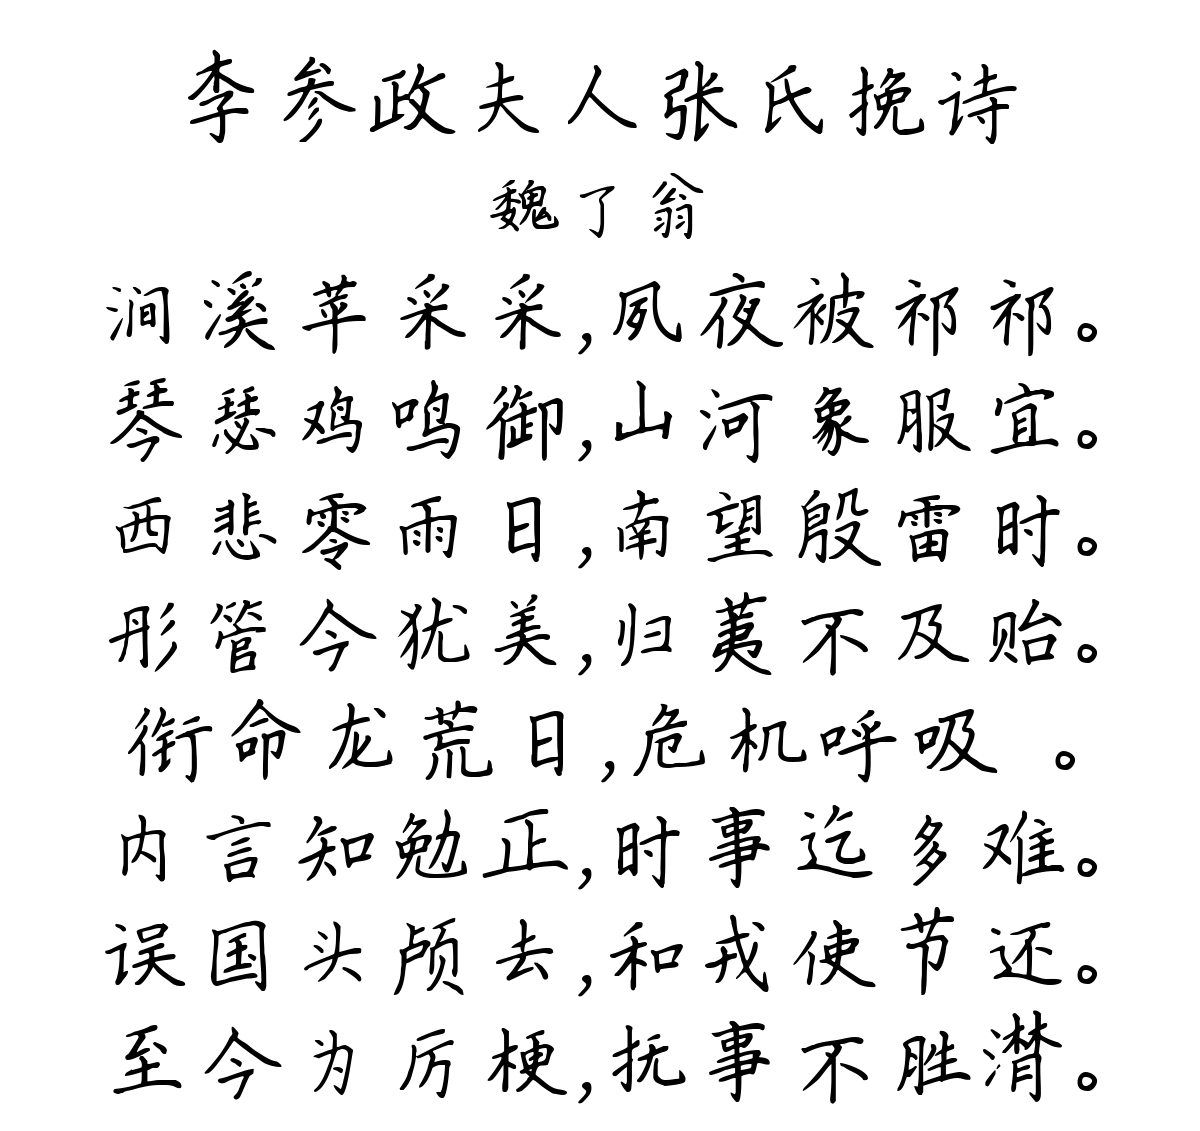 李参政夫人张氏挽诗
魏了翁
涧溪苹采采,夙夜被祁祁。
琴瑟鸡鸣御,山河象服宜。
西悲零雨日,南望殷雷时。
彤管今犹美,归荑不及贻。
衔命龙荒日,危机呼吸 。
内言知勉正,时事迄多难。
误国头颅去,和戎使节还。
至今为厉梗,抚事不胜潸。